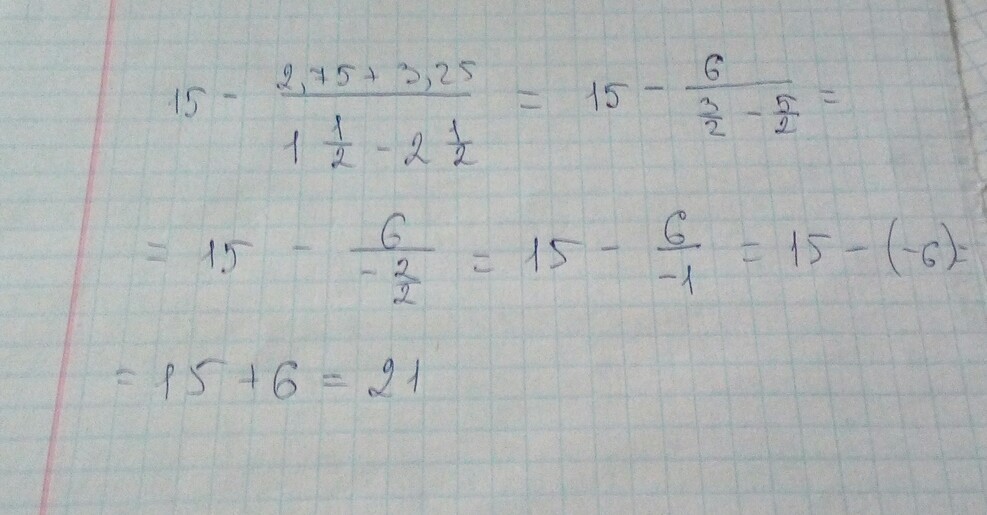 15 - (2,75 + 3,25)/(1 1/2 - 2 1/2) = 15 - 6/(3/2 - 5/2) =
= 15 - 6/(-2/2) = 15 - 6/-1 = 15 - (-6) =
= 15 + 6 = 21